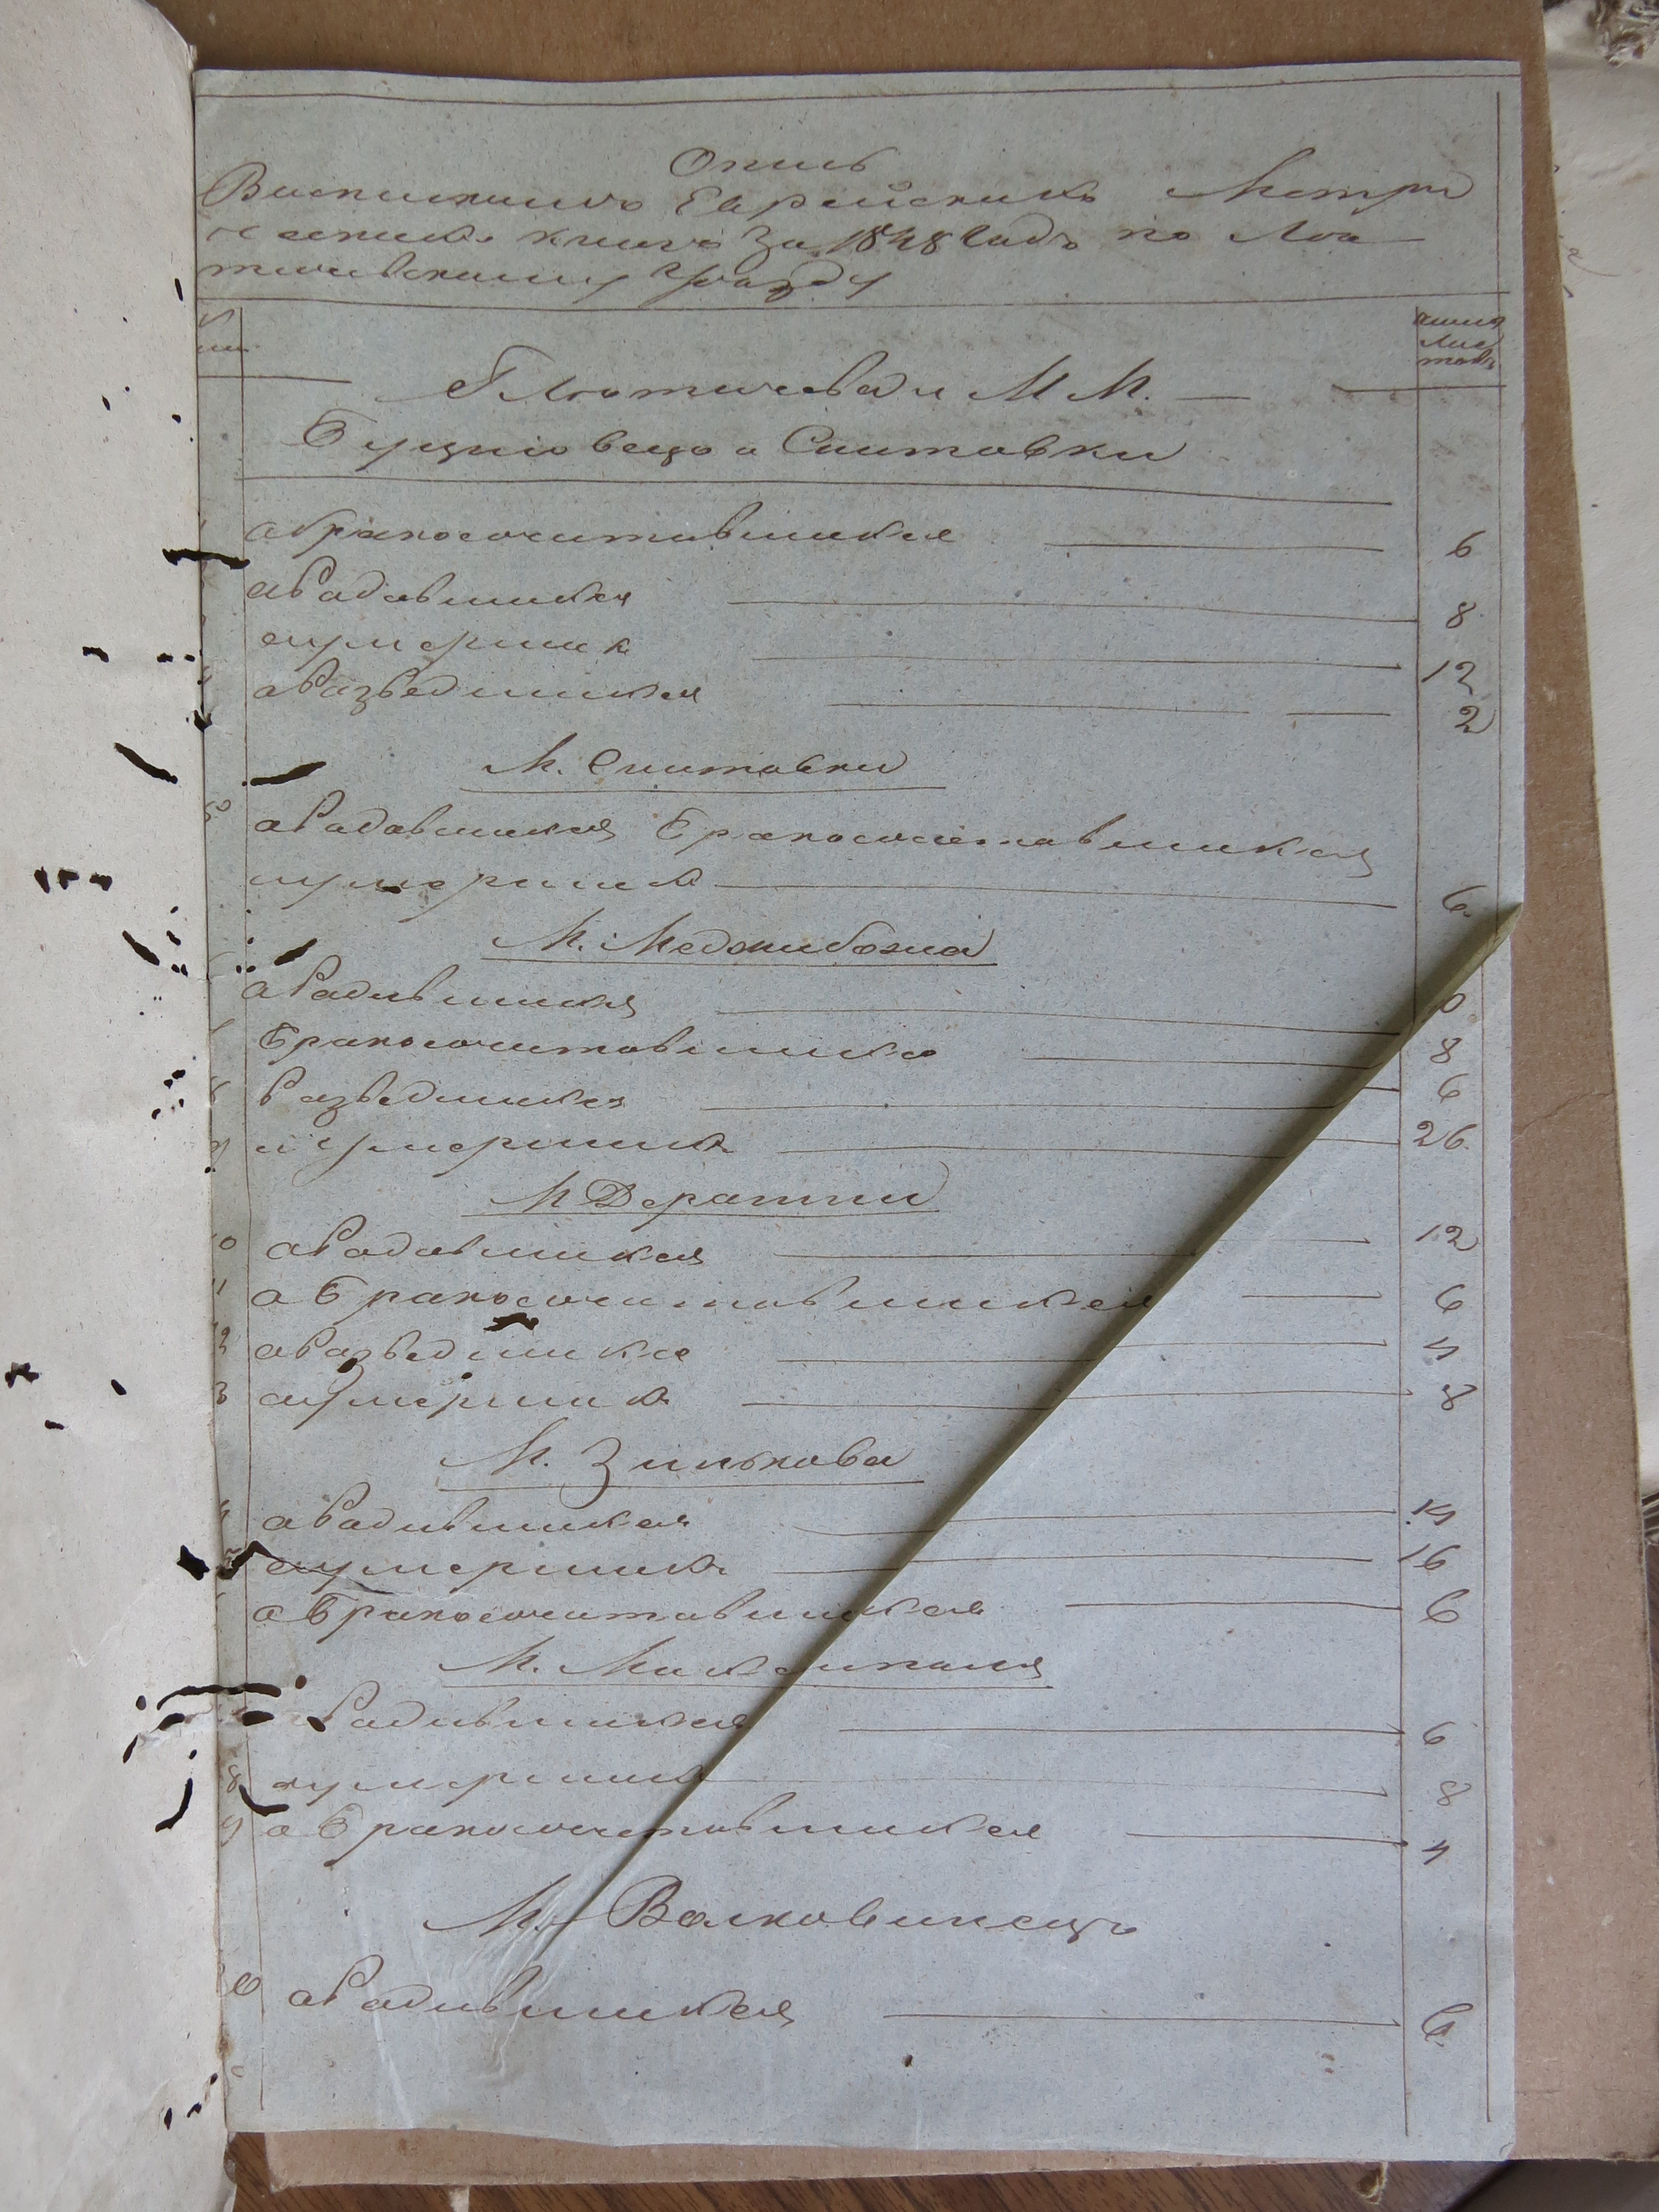 Опись
Еврейскихъ Метри
ческихъ книгъ за 1848 годъ по Ле
тичевскому уезду
№
число
лис
товъ
Г Лютичева и М М.
и Снитовки
а бракосочитавшихся 6
о Родавшихся 8
о умершихъ 12
о Разведшихся 2
М. Снитовки
о Родавшихся Бракосочетавшихся
и умершихъ 6
М. Меджибожа
о Родившихся
Бракосочитавшихся 8
8 Разведшихся 6
9 и умершихъ 26
М Деражни
10 о Родавшихся 12
11 о Бракосочитавшихся 6
12 о Разведшихся 4
13 о умершихъ 8
М. Зинькова
о Родившихся 14
о умершихъ 16
о Бракосочитавшихся 6
М.
Родившихся 6
8 о умершихъ 8
9 о Бракосочетавшихся 4
М. Волковинецъ
20 о Родившихся 6